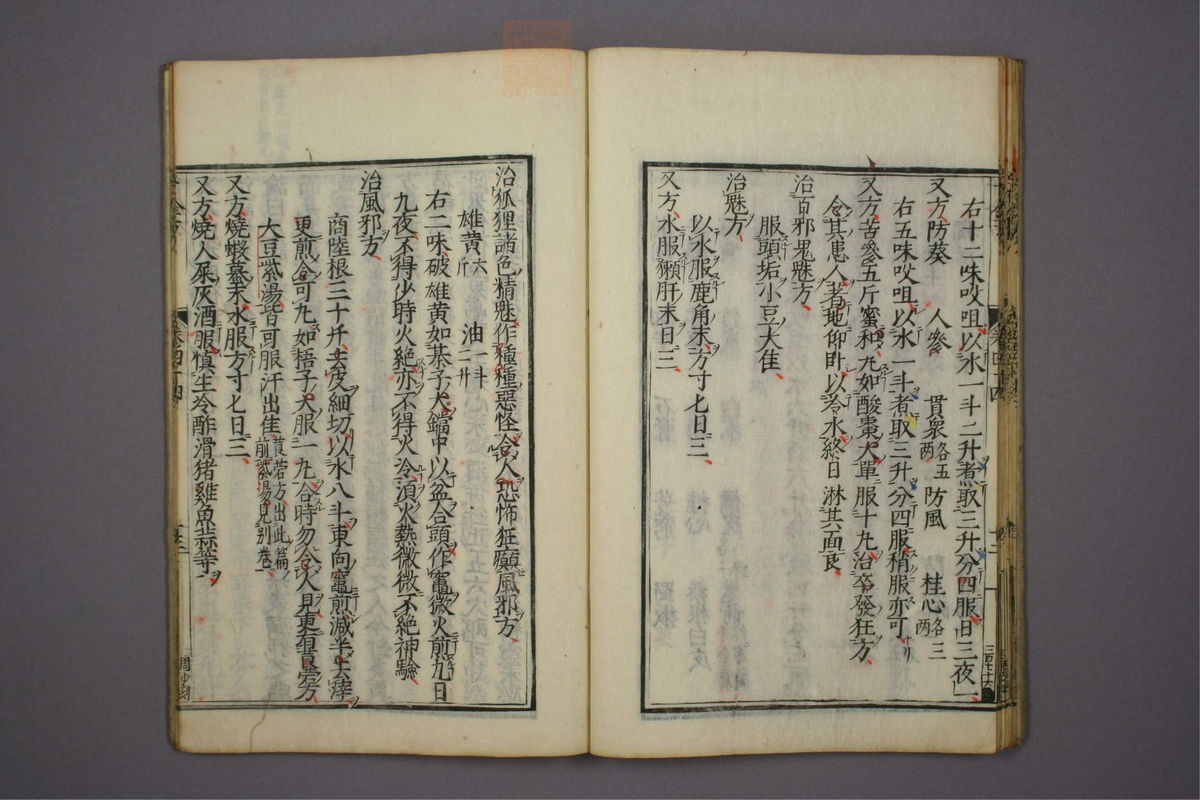 右十二味㕮咀以水一斗二升煮取三升分四服日三夜一
又方防葵 人參 貫衆各五两 防風 桂心各三两
右五味㕮咀以水一斗煮取三升分四服稍服亦可
又方苦參五斤蜜和丸如酸棗大單服十丸治卒發狂方
令其患人著地仰卧以冷水終日淋其面良
治百邪鬼魅方
服頭垢小豆大佳
治魅方
以水服鹿角末方寸七日三
又方水服獺肝末日三
治狐狸諸色精魅作種種惡怪令人恐怖狂癲風邪方
雄黄六斤 油一斗二升
右二味破雄黄如棊子大鐺中以盆合頭作竈微火煎九日
九夜不得少時火絶亦不得火冷湏火熱微微不絶神驗
治風邪方
商陸根三十斤去皮細切以水八斗東向竈煎減半去滓
更煎令可丸如梧子大服一丸合時勿令人見更有莨菪方
大豆紫湯皆可服汗出佳莨菪方出此篇前紫湯見别卷
又方燒蝦蟇末水服方寸七日三
又方燒人屎灰酒服慎生冷酢滑猪雞魚蒜等
卷四十四
周少刻